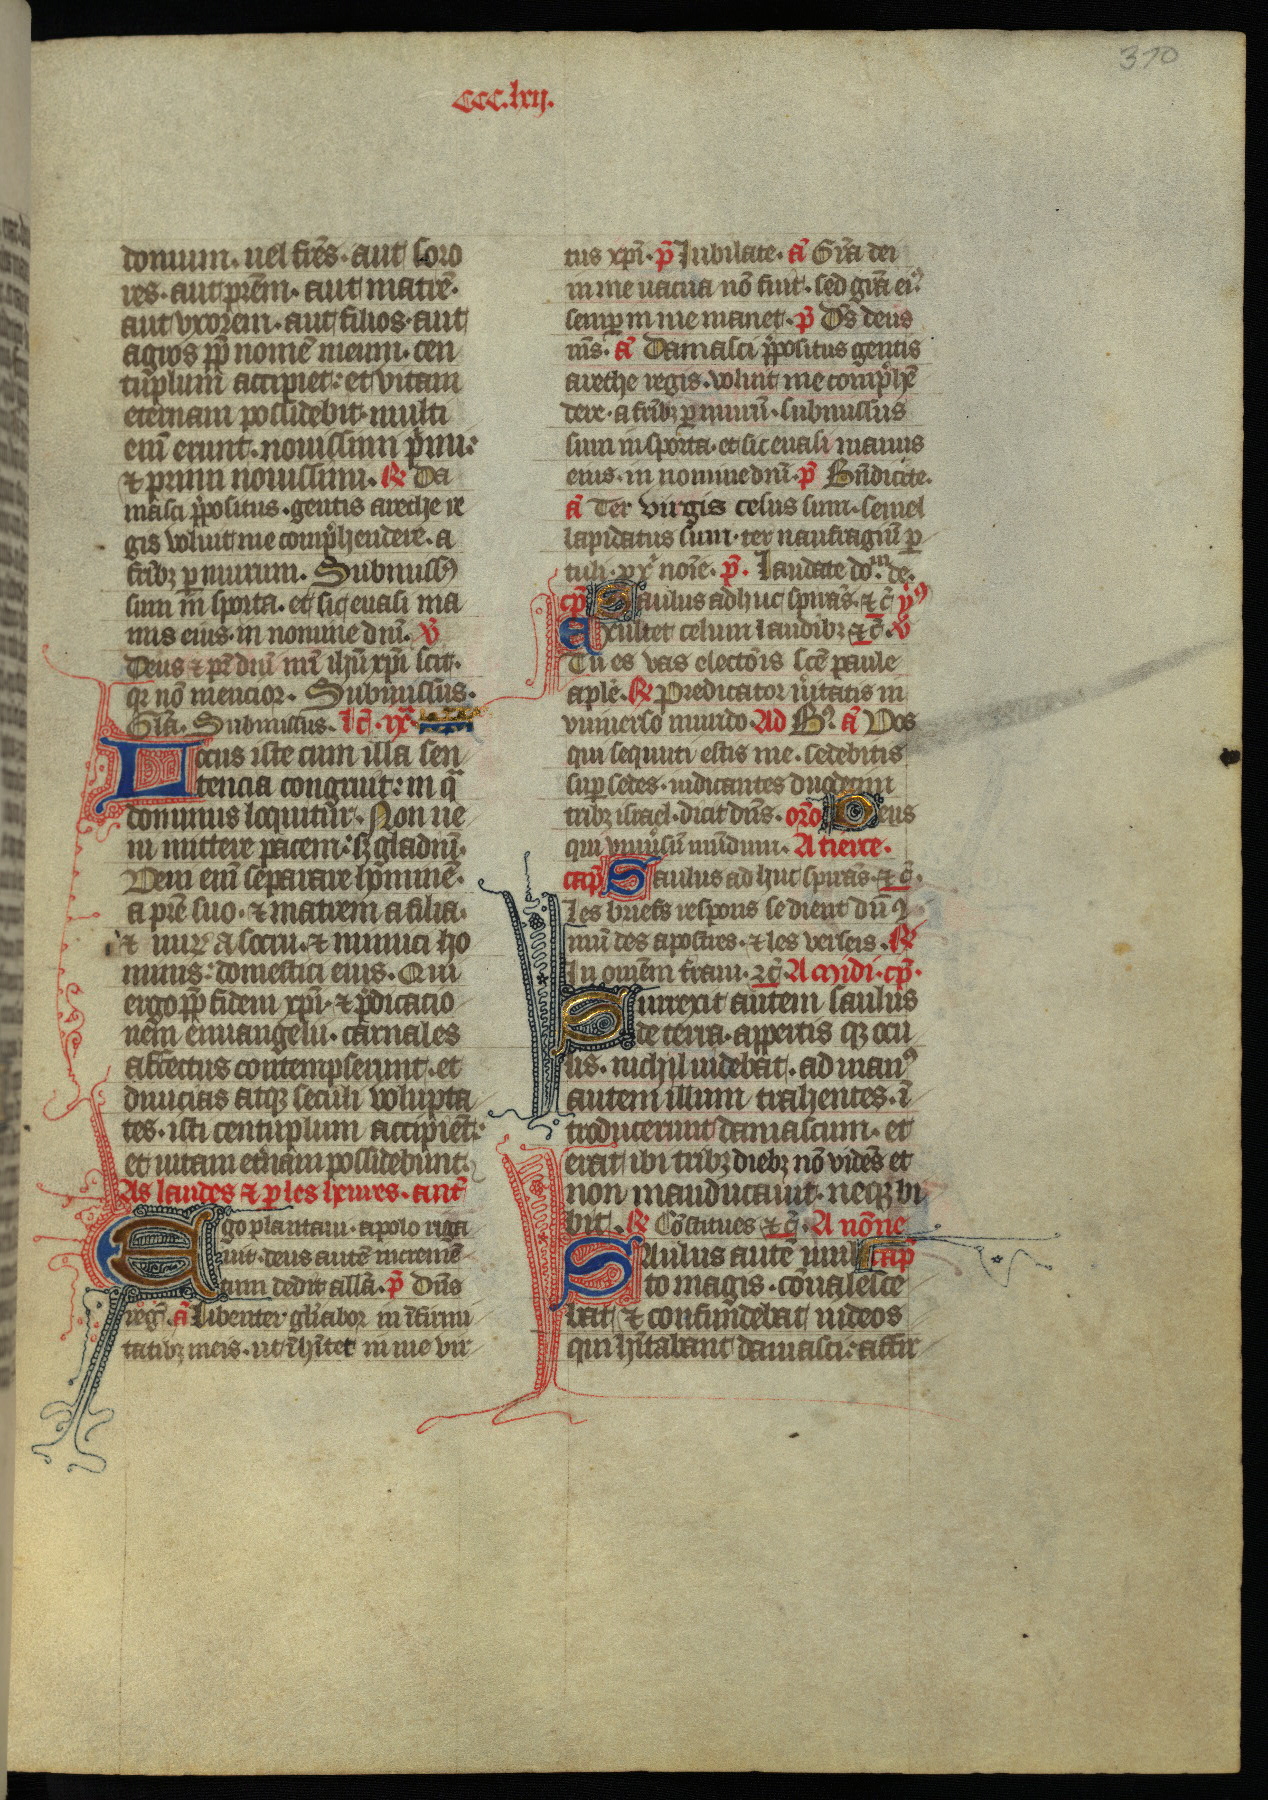 370
ccc.lxij.
domum. uel frēs. aut soro
res. aut prēm. aut matrē.
aut vxorem. aut filios. aut
agros pp̄ nomē meum. cen
tuplum accipiet: et vitam
eternam possidebit. multi
enī erunt. nouissimi p̄mi:
⁊ primi nouissimi. ℟ Da
masci p̄positus. gentis arethe re
gis voluit me comp̄hendere. a
frībȝ ꝑ murum. Submissꝰ
sum in sporta. et sic euasi ma
nus eius. in nomine dnī. ℣
Deus ⁊ pr̄ dnī nrī ihū xp̄i scit.
qr nō mencior. Submissus.
Glā. Submissus. lc̄. ix.
Locus iste cum illa sen
tencia congruit: in q̄
dominus loquitur. Non ue
ni mittere pacem: sȝ gladiū.
Veni enī separare hominē.
a prē suo. ⁊ matrem a filia.
⁊ nur a socru. ⁊ inimici ho
minis: domestici eius. Qui
ergo pp̄ fidem xp̄i. ⁊ p̄dicatio
nem emuangelii. carnales
affectus contempserunt. et
diuicias atqȝ seculi volupta
tes. isti centuplum accipiēt:
et uitam etnam possidebunt.
As laudes ⁊ p les heures. ant̄
Ego plantaui. apolo riga
uit. deus autē incremē
tum dedit allā. p̄ Dn̄s
regn̄. ā Libenter glīabor in ifirmi
tatibȝ meis. ut īhītet in me vir
tus xp̄i. p̄ Iubilate. ā Grā dei
in me uacua nō fuit. sed grā eiꝰ
semꝑ in me manet. p̄ Ds̄ deus
ms̄. ā Damasci p̄positus gentis
arethe regis. voluit me comp̄hē
dere. a frībȝ ꝑ murū. submissus
sum in sporta. et sic euasi manus
eius. in nomine dnī. p̄ Bn̄dicite.
ā Ter virgis cesus sum. semel
lapidatus sum. ter naufragiū ꝑ
tuli. p xī noīe. p̄. Laudate dom̄. de.
cp̄ Saulus adhuc spirās. ⁊ c̄ yꝰ
Exultet celum laudibȝ ⁊ c̄. ℣
Tu es vas electōis scē paule
aplē. ℟ Predicator ūitatis in
vniuerso mundo. Ad Bn̄. ā Vos
qui sequuti estis me. sedebitis
suꝑ sedes. iudicantes duodecim
tribȝ israel. dicit dn̄s. orō Deus
qui vniūsū mūdum. A tierce.
cap̄ Saulus ad huc spiras. ⁊ c̄.
Les briefs respons se dient dū 9
mū des apostres. ⁊ les verseis. ℟
In omēm terrā. ⁊c̄. A midi. cp̄.
Surrexit autem saulus
de terra. appertis qȝ ocu
lis. nichil uidebat. ad manꝰ
autem illum trahentes. ī
troduxerunt damascum. et
erat ibi tribȝ diebȝ nō vidēs et
non manducauit. neqȝ bi
bit. ℟ Cōstitues ⁊ c̄. A nōne
Saulus autē mul cap̄
to magis. cōualesce
bat ⁊ confundebat iudeos
qui hītabant damasci: affir